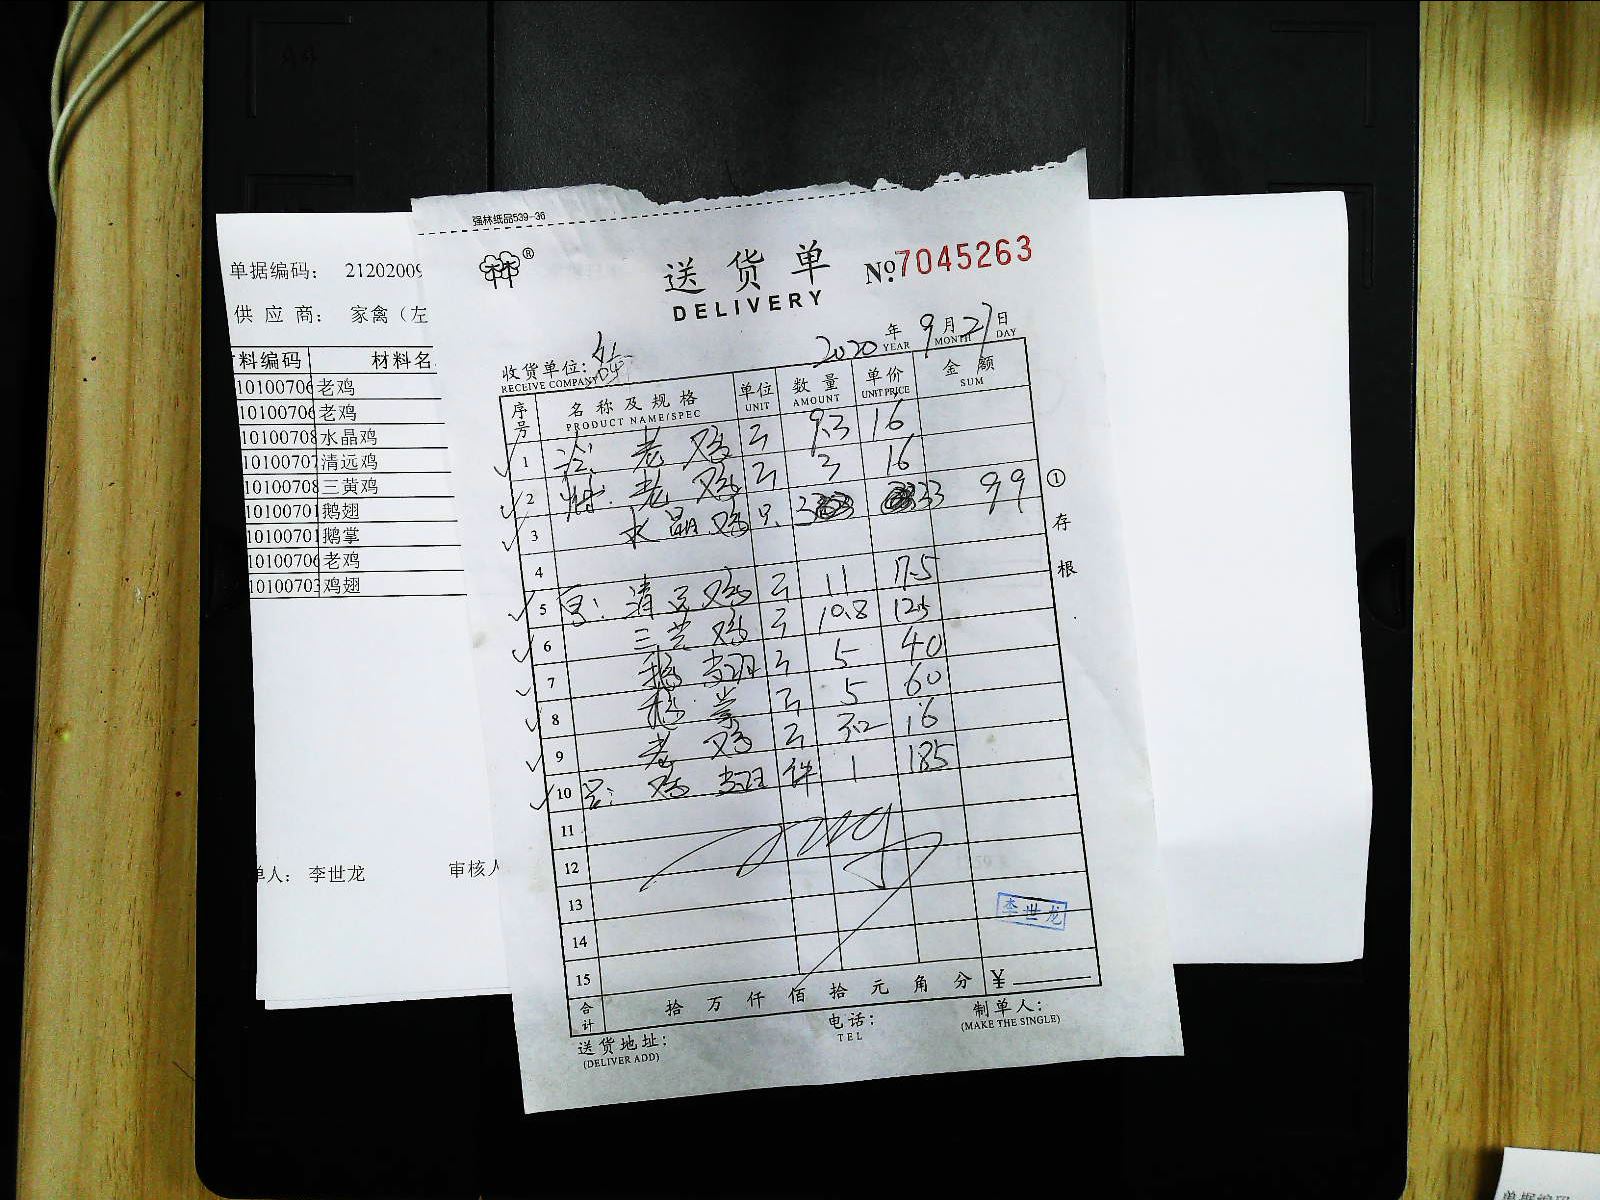 强林纸品539-36
送货单
DELIVERY
№ 7045263
单据编码： 21202009
供应商： 家禽（左
料编码 材料名
10100706 老鸡
10100706 老鸡
10100708 水晶鸡
10100707 清远鸡
10100708 三黄鸡
10100701 鹅翅
10100701 鹅掌
10100706 老鸡
10100703 鸡翅
单人： 李世龙 审核人
2020 年 9 月 27 日
YEAR MONTH DAY
收货单位：
RECEIVE COMPANY
序号 名称及规格 单位 数量 单价 金额
PRODUCT NAME/SPEC UNIT AMOUNT UNIT PRICE SUM
1 老鸡 斤 9.3 16
2 老鸡 斤 3 16
3 水晶鸡 只 3 33 99
4
5 清远鸡 斤 11 17.5
6 三黄鸡 斤 10.8 12.5
7 鹅翅 斤 5 40
8 鹅掌 斤 5 60
9 老鸡 斤 3.2 16
10 鸡翅 件 1 185
11
12
13
14
15
李世龙
合计 拾 万 仟 佰 拾 元 角 分 ¥
①存根
送货地址：
(DELIVER ADD)
电话：
TEL
制单人：
(MAKE THE SINGLE)
单据编码